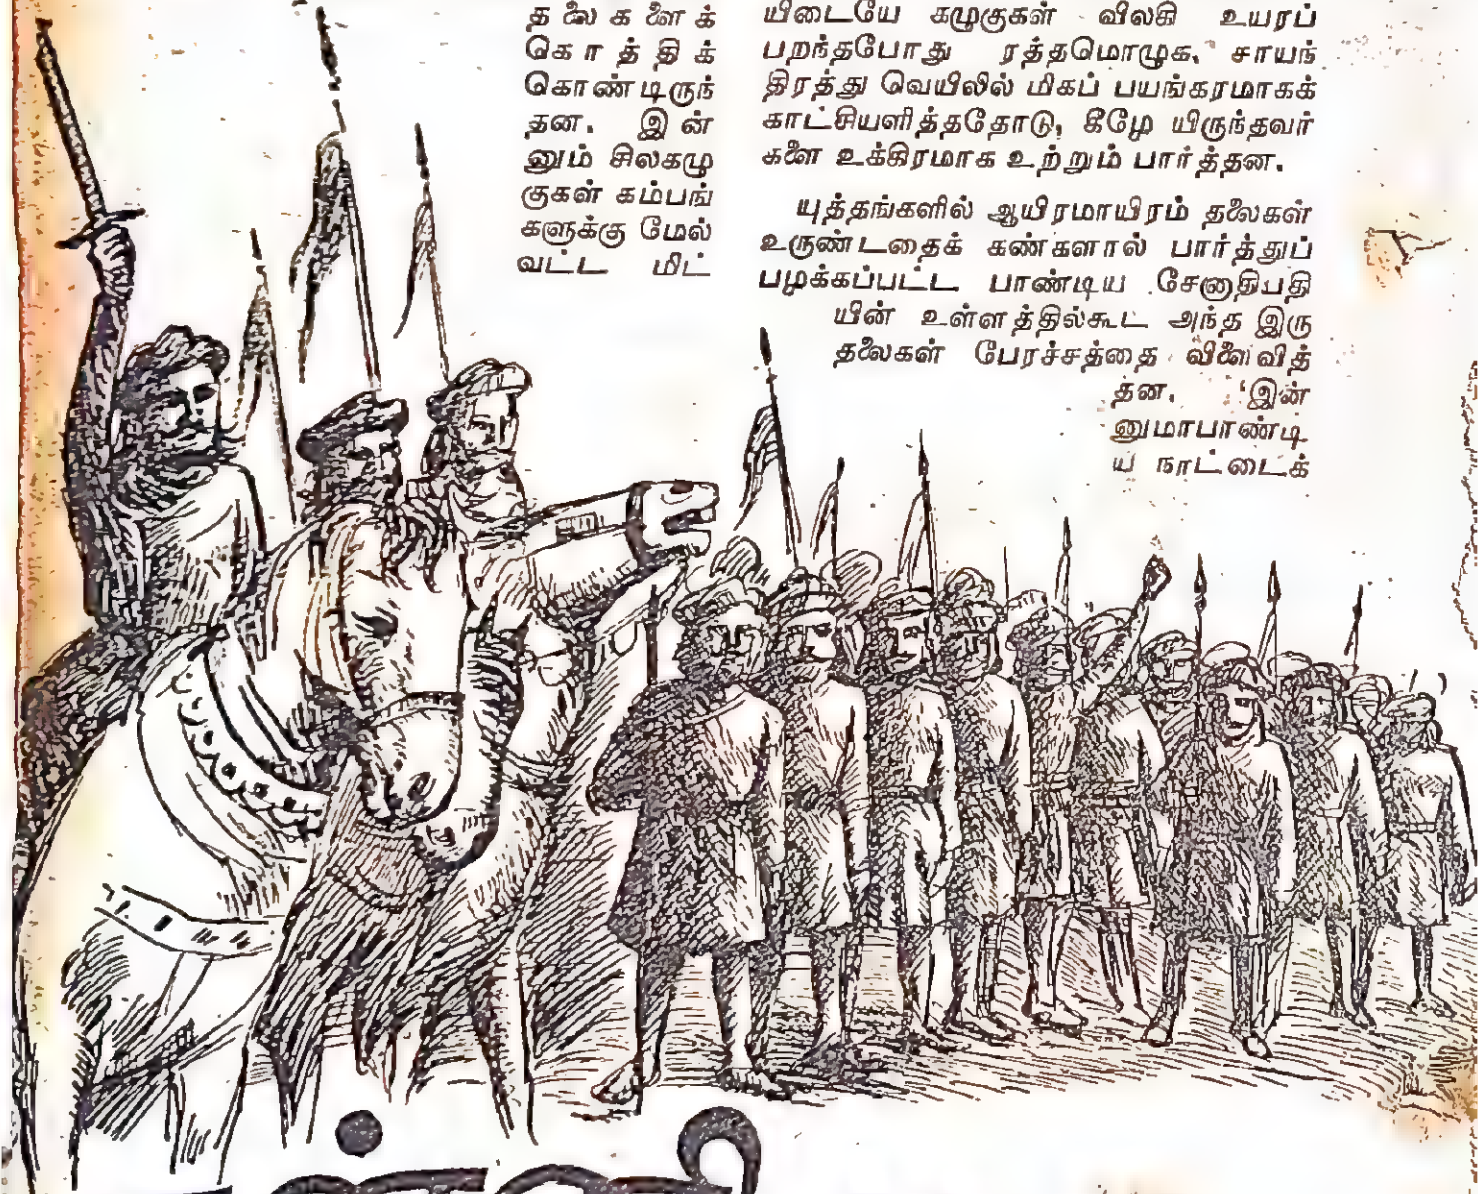 தலைகளைக்
கொத்திக்
கொண்டிருந்
தன. இன்
னும் சிலகழு
குகள் கம்பங்
களுக்கு மேல்
வட்ட மிட்
யிடையே கழுகுகள் விலகி உயரப்
பறந்தபோது ரத்தமொழுக, சாயந்
திரத்து வெயிலில் மிகப் பயங்கரமாகக்
காட்சியளித்ததோடு, கீழே யிருந்தவர்
களை உக்கிரமாக உற்றும் பார்த்தன.
யுத்தங்களில் ஆயிரமாயிரம் தலைகள்
உருண்டதைக் கண்களால் பார்த்துப்
பழக்கப்பட்ட பாண்டிய சேனாதிபதி
யின் உள்ளத்தில்கூட அந்த இரு
தலைகள் பேரச்சத்தை விளைவித்
தன. 'இன்
னுமாபாண்டி
ய நாட்டைக்